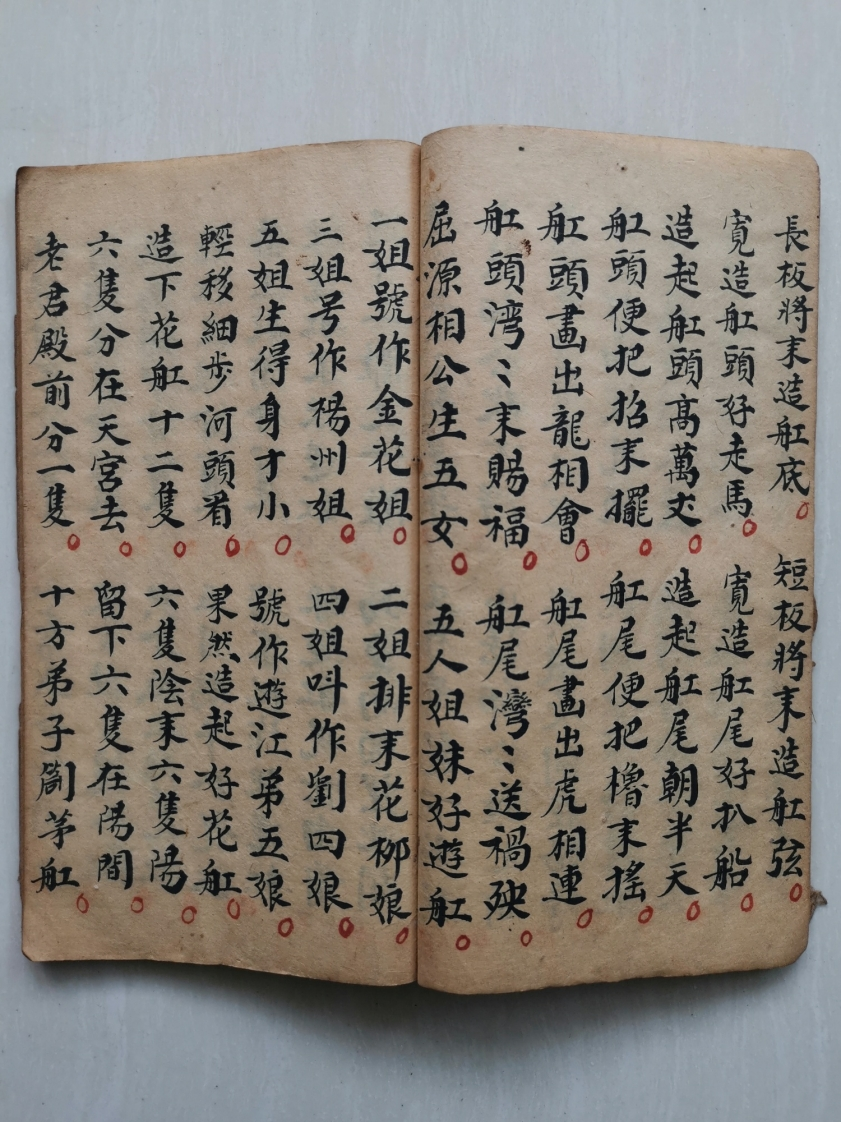 長板將来造舡底 短板將来造舡弦
寛造舡頭好走馬 寛造舡尾好扒船
造起舡頭高萬丈 造起舡尾朝半天
舡頭便把招来擺 舡尾便把櫓来搖
舡頭畫出龍相會 舡尾畫出虎相連
舡頭湾〻来賜福 舡尾灣〻送禍殃
屈源相公生五女 五人姐妹好遊舡
一姐號作金花姐 二姐排来花柳娘
三姐号作楊州姐 四姐呌作劉四娘
五姐生得身才小 號作遊江苐五娘
輕移細步河頭看 果然造起好花舡
造下花舡十二隻 六隻陰来六隻陽
六隻分在天宮去 留下六隻在陽間
老君殿前分一隻 十方弟子茅舡